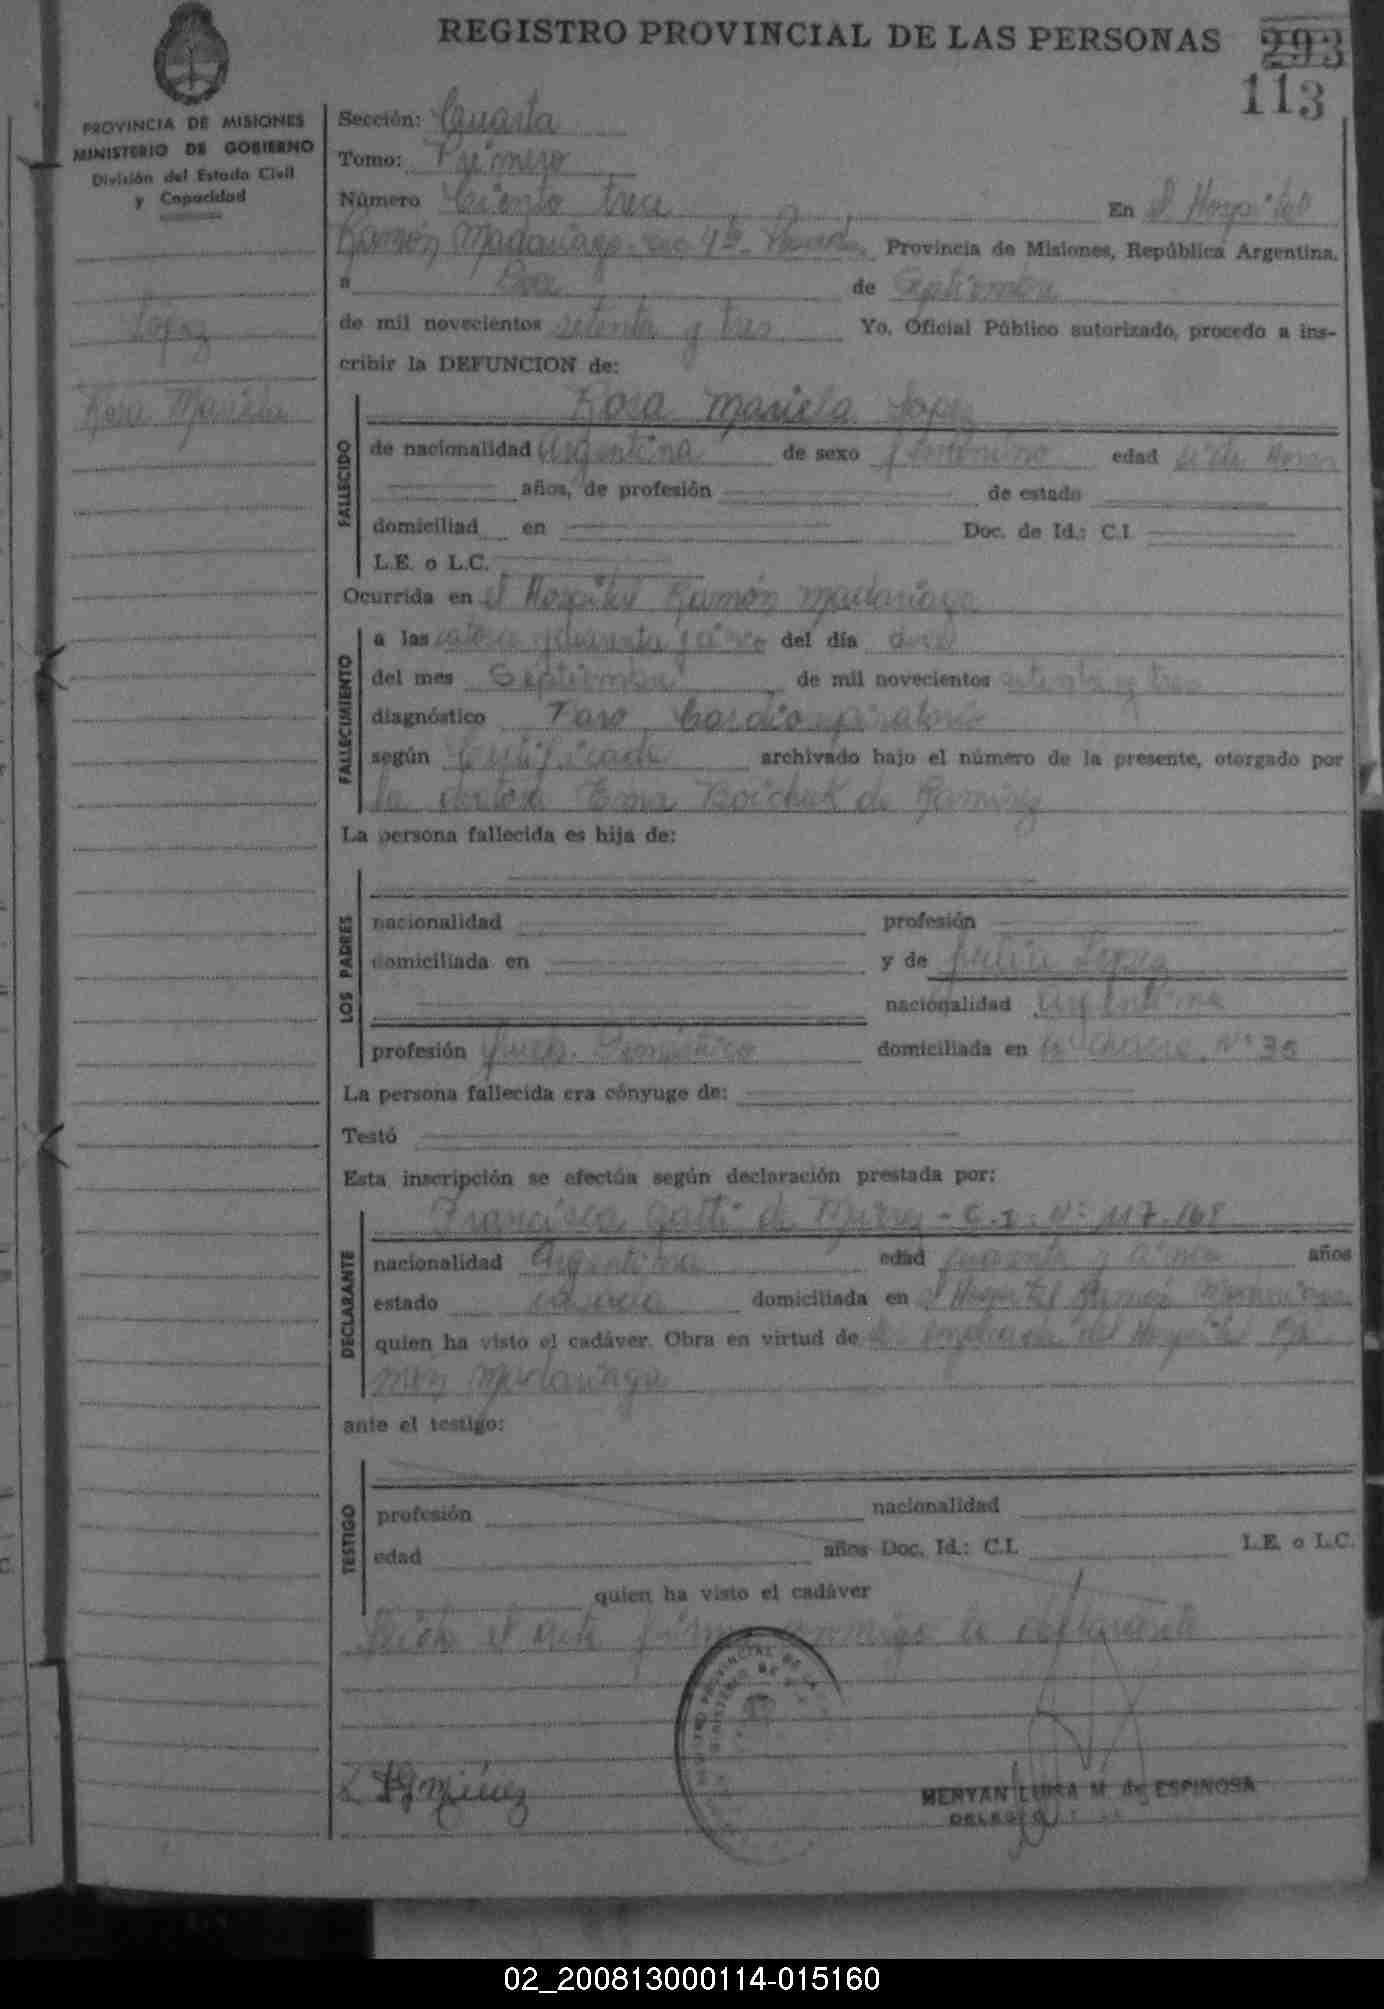 REGISTRO PROVINCIAL DE LAS PERSONAS
293
113
PROVINCIA DE MISIONES
MINISTERIO DE GOBIERNO
División del Estado Civil
y Capacidad
Lopez
Rosa Mariela
Sección: Cuarta
Tomo: Primero
Número Ciento trece En el Hospital
Ramón Madariaga Provincia de Misiones, República Argentina,
a de Septiembre
de mil novecientos setenta y tres Yo, Oficial Público autorizado, procedo a ins-
cribir la DEFUNCION de:
Rosa Mariela Lopez
FALLECIDO
de nacionalidad Argentina de sexo femenino edad siete horas
años, de profesión de estado
domiciliad en Doc. de Id.: C.I.
L.E. o L.C.
Ocurrida en el Hospital Ramón Madariaga
FALLECIMIENTO
a las catorce y cuarenta y cinco del día doce
del mes Septiembre de mil novecientos setenta y tres
diagnóstico Paro Cardiorespiratorio
según Certificado archivado bajo el número de la presente, otorgado por
la doctora Ema Boichuk de Ramirez
La persona fallecida es hija de:
LOS PADRES
nacionalidad profesión
domiciliada en y de Julia Lopez
nacionalidad Argentina
profesión Queh. Doméstico domiciliada en la chacra Nº 35
La persona fallecida era cónyuge de:
Testó
Esta inscripción se efectúa según declaración prestada por:
DECLARANTE
Francisca Gatti de - C.I. Nº 117.168
nacionalidad Argentina edad cuarenta y cinco años
estado casada domiciliada en el Hospital Ramón Madariaga
quien ha visto el cadáver. Obra en virtud de ser empleada del Hospital Ra
món Madariaga
ante el testigo:
TESTIGO
profesión nacionalidad
edad años Doc. Id.: C.I. L.E. o L.C.
quien ha visto el cadáver
Leída el acta firma conmigo la declarante
MERYAN LUISA M. de ESPINOSA
02_200813000114-015160